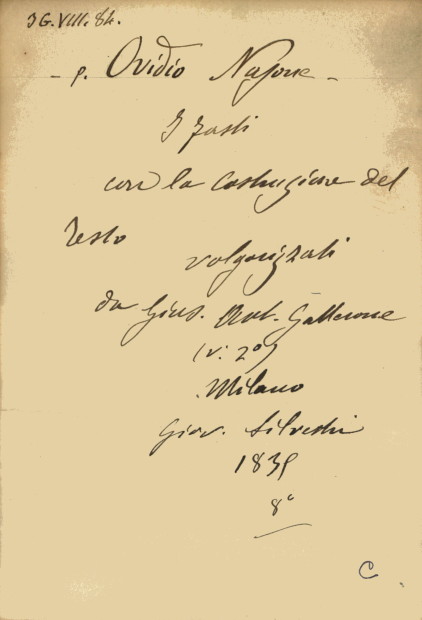 IG. VIII. 84.
- p. Ovidio Nasone -
I Fasti
con la costruzione del
testo
volgarizzati
da Gius. Ant. Gallerone
(v. 2°)
Milano
Giov. Silvestri
183
8°
C